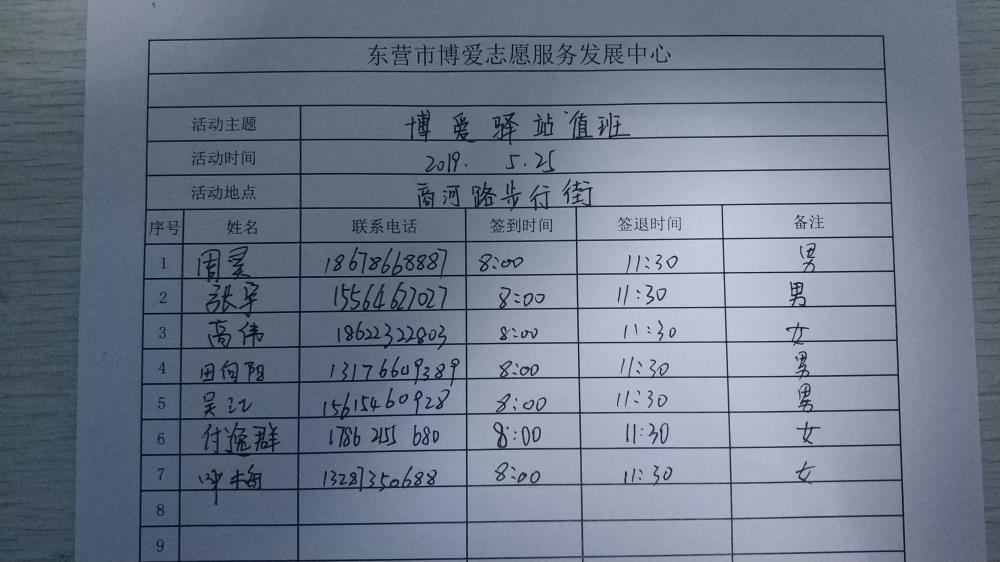 东营市博爱志愿服务发展中心
活动主题 博爱驿站值班
活动时间 2019. 5.25
活动地点 商河路步行街
序号 姓名 联系电话 签到时间 签退时间 备注
1 周昊 18678668887 8:00 11:30 男
2 张宇 15564627027 8:00 11:30 男
3 高伟 18622322803 8:00 11:30 女
4 田向阳 13176609389 8:00 11:30 男
5 吴江 15615460928 8:00 11:30 男
6 付逸群 1786 2155 680 8:00 11:30 女
7 13287350688 8:00 11:30 女
8
9